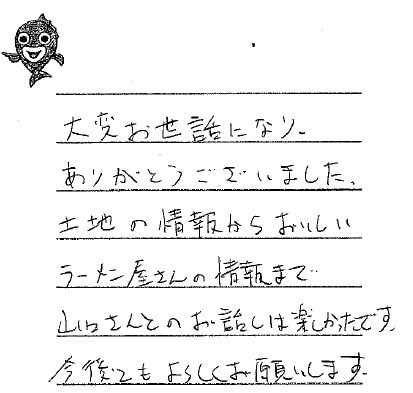 大変お世話になり、
ありがとうございました、
土地の情報からおいしい
ラーメン屋さんの情報まで
山口さんとのお話しは楽しかったです。
今後ともよろしくお願いします。